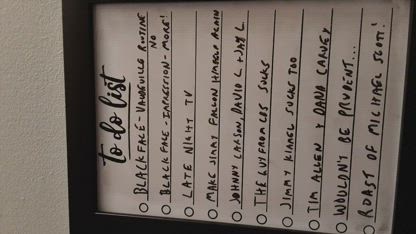 to do list
BLACKFACE - VAUDEVILLE ROUTINE
NO
BLACKFACE - IMPRESSION - MORE!
LATE NIGHT TV
MAKE JIMMY FALLON HIMSELF AGAIN
JOHNNY CARSON, DAVID L + JAY L.
THE GUY FROM CBS SUCKS
JIMMY KIMMEL SUCKS TOO
TIM ALLEN & DANA CARVEY
WOULDN'T BE PRUDENT...
ROAST OF MICHAEL SCOTT!